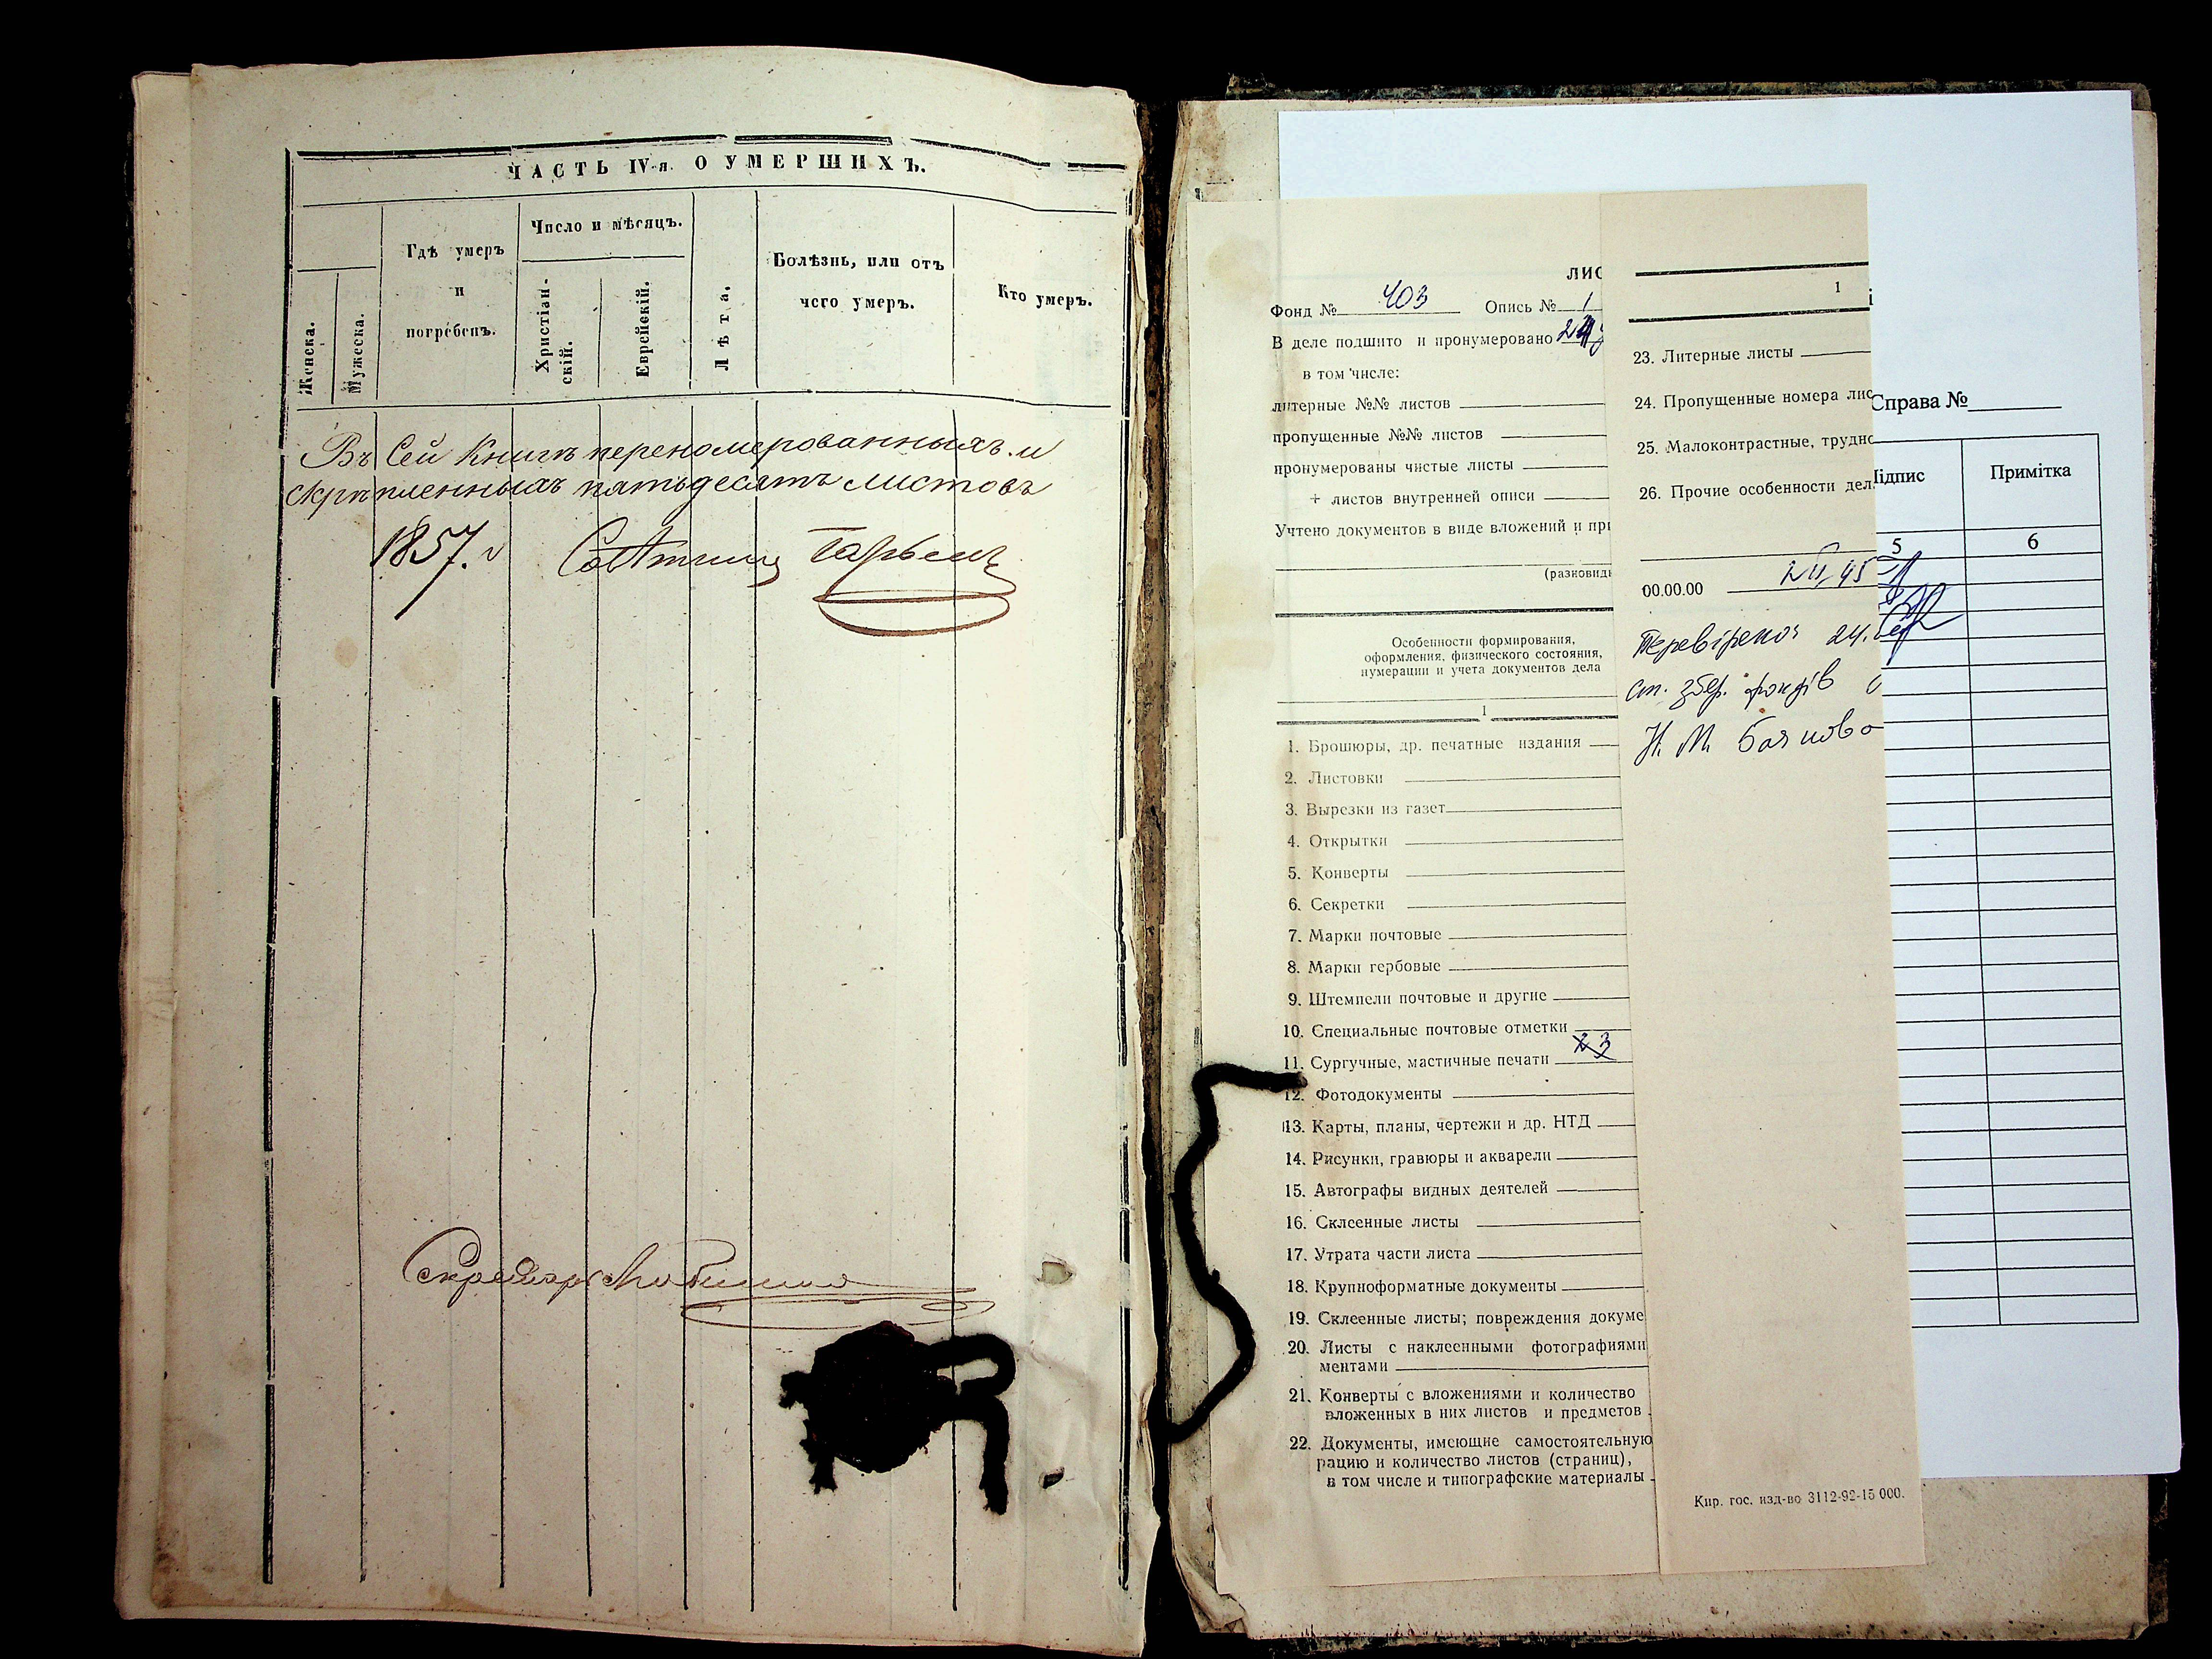 ЧАСТЬ IV-я. О УМЕРШИХЪ.
Женска.
Мужеска.
Гдѣ умеръ
и
погребенъ.
Число и мѣсяцъ.
Христіан-
скій.
Еврейскій.
Лѣта.
Болѣзнь, или отъ
чего умеръ.
Кто умеръ.
Въ Сей Книгѣ переномерованныхъ и
скрѣпленныхъ пятьдесятъ листовъ
1857.
ЛИС
Фонд № 403 Опись № 1
В деле подшито и пронумеровано
в том числе:
литерные №№ листов
пропущенные №№ листов
пронумерованы чистые листы
+ листов внутренней описи
Учтено документов в виде вложений и при
(разновидн
Особенности формирования,
оформления, физического состояния,
нумерации и учета документов дела
1
1. Брошюры, др. печатные издания
2. Листовки
3. Вырезки из газет
4. Открытки
5. Конверты
6. Секретки
7. Марки почтовые
8. Марки гербовые
9. Штемпели почтовые и другие
10. Специальные почтовые отметки
11. Сургучные, мастичные печати
12. Фотодокументы
13. Карты, планы, чертежи и др. НТД
14. Рисунки, гравюры и акварели
15. Автографы видных деятелей
16. Склеенные листы
17. Утрата части листа
18. Крупноформатные документы
19. Склеенные листы; повреждения докуме
20. Листы с наклеенными фотографиями
ментами
21. Конверты с вложениями и количество
вложенных в них листов и предметов
22. Документы, имеющие самостоятельную
рацию и количество листов (страниц),
в том числе и типографские материалы
1
23. Литерные листы
24. Пропущенные номера лис
25. Малоконтрастные, трудно
26. Прочие особенности дел
00.00.00
Перевірено 24.
ст. збер. фондів
Н. М.
Кир. гос. изд-во 3112-92-15 000.
Справа №
Підпис
Примітка
5
6